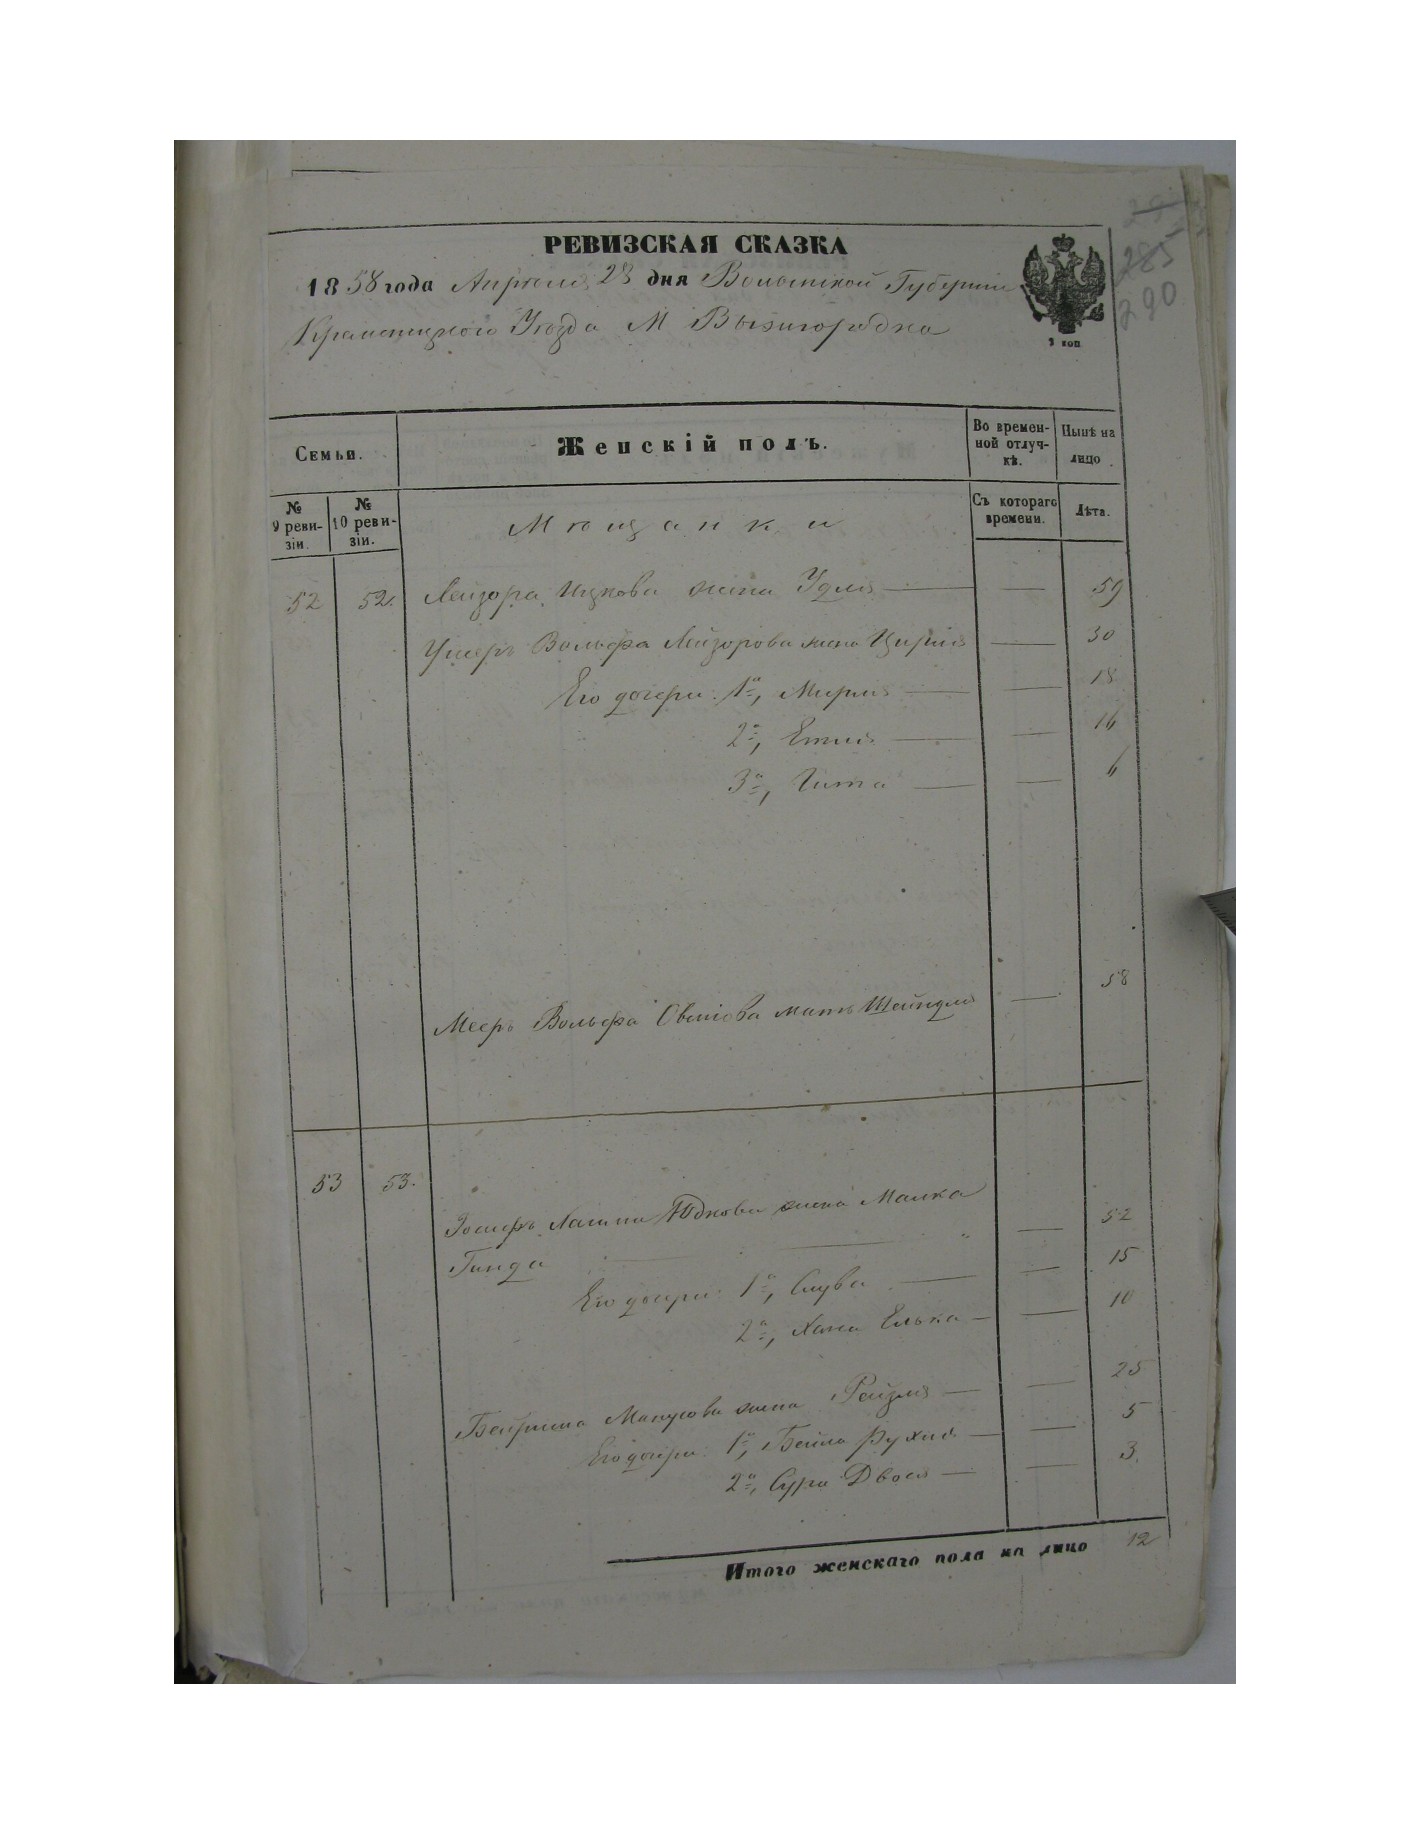 285
290
РЕВИЗСКАЯ СКАЗКА
1858 года Апреля 28 дня Волынской Губернии
Кременецкого Уезда М Вышгородка
Семьи.
Женскій полъ.
Во времен-
ной отлуч-
кѣ.
Нынѣ на
лицо
№
9 реви-
зіи.
№
10 реви-
зіи.
Съ котораго
времени.
Лѣта.
Мещанки
52 52. Лейзора Ицкова жена Удля — — 59
Усеръ Вольфа Лейзорова жена Цирля — 30
Его дочери: 1я, Мирля — — 18
2я, Етля — — 16
3я, Гита — — 6
Мееръ Вольфа мать Шейндля — 58
53 53. Иосифъ Юдкова жена Малка
Гинда — — 52
Его дочери: 1я, Слува — — 15
2я, Хана Елька — — 10
жена Рейзля — — 25
Его дочери: 1я, Бейла Рухля — — 5
2я, Сура Двося — — 3.
Итого женскаго пола на лицо 12